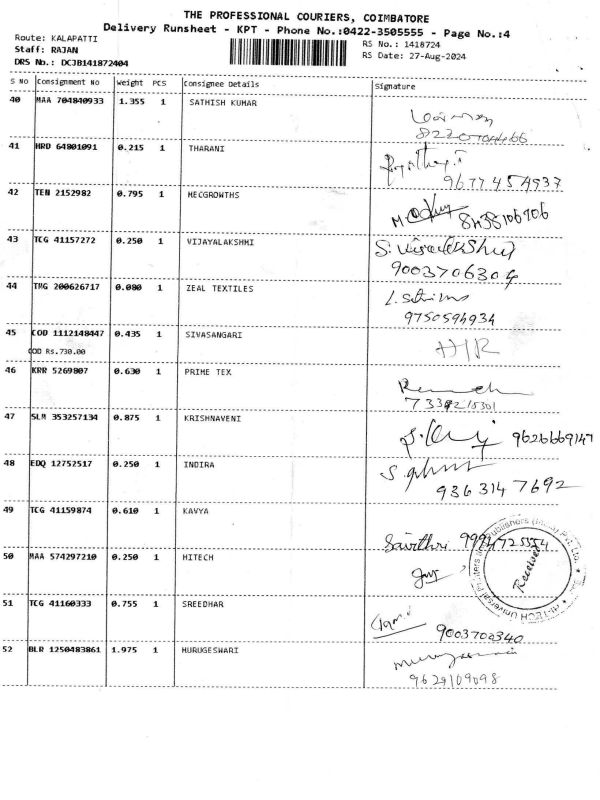 THE PROFESSIONAL COURIERS, COIMBATORE
Delivery Runsheet - KPT - Phone No.:0422-3505555 - Page No.:4
Route: KALAPATTI
RS No.: 1418724
Staff: RAJAN
RS Date: 27-Aug-2024
DRS No.: DCJB141872404
S No Consignment No Weight PCS Consignee Details Signature
40 MAA 704840933 1.355 1 SATHISH KUMAR
41 HRD 64801091 0.215 1 THARANI
9677454937
42 TEN 2152982 0.795 1 MECGROWTHS
43 TCG 41157272 0.250 1 VIJAYALAKSHMI
9003706304
44 TMG 200626717 0.080 1 ZEAL TEXTILES
9750594934
45 COD 1112148447 0.435 1 SIVASANGARI
COD Rs.730.00
46 KRR 5269807 0.630 1 PRIME TEX
47 SLM 353257134 0.875 1 KRISHNAVENI
9626669147
48 EDQ 12752517 0.250 1 INDIRA
9363147692
49 TCG 41159874 0.610 1 KAVYA
Savithri 9994725554
50 MAA 574297210 0.250 1 HITECH
Received
51 TCG 41160333 0.755 1 SREEDHAR
9003702340
52 BLR 1250483861 1.975 1 MURUGESWARI
9629109098